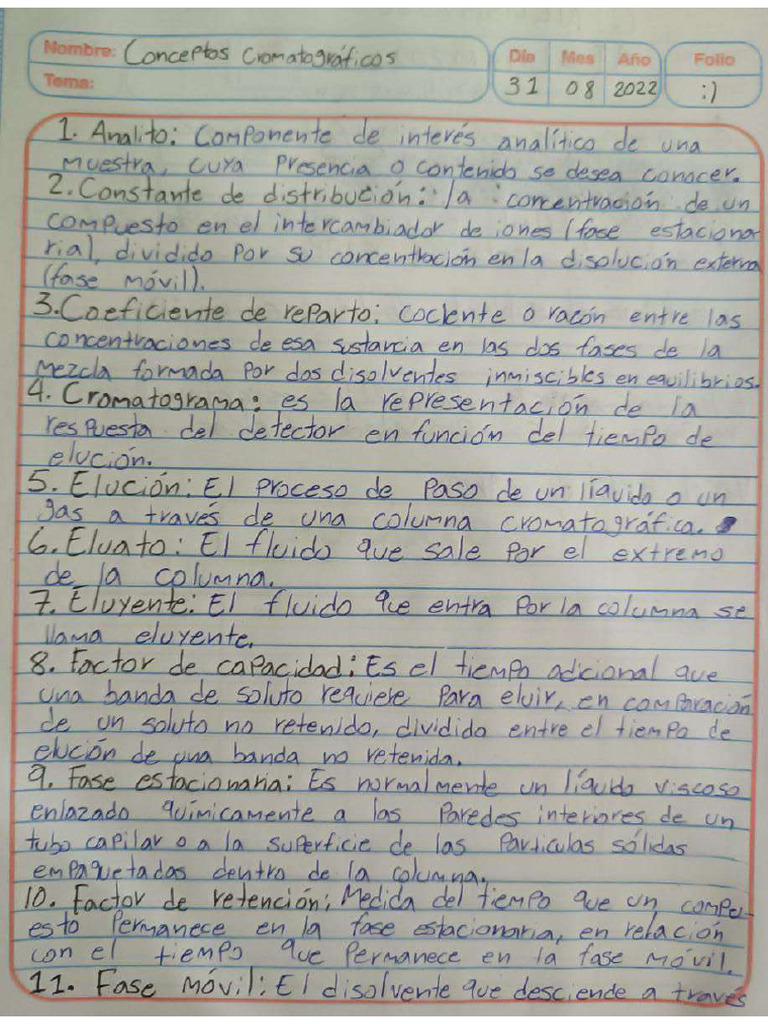 Nombre: Conceptos Cromatográficos
Día Mes Año Folio
Tema:
31 08 2022 :)
1. Analito: Componente de interés analítico de una
muestra, cuya presencia o contenido se desea conocer.
2. Constante de distribución: la concentración de un
compuesto en el intercambiador de iones (fase estacionar
rial), dividido por su concentración en la disolución externa
(fase móvil).
3. Coeficiente de reparto: cociente o razón entre las
concentraciones de esa sustancia en las dos fases de la
mezcla formada por dos disolventes inmiscibles en equilibrios.
4. Cromatograma: es la representación de la
respuesta del detector en función del tiempo de
elución.
5. Elución: El proceso de paso de un líquido o un
gas a través de una columna cromatográfica.
6. Eluato: El fluido que sale por el extremo
de la columna.
7. Eluyente: El fluido que entra por la columna se
llama eluyente.
8. Factor de capacidad: Es el tiempo adicional que
una banda de soluto requiere para eluir, en comparación
de un soluto no retenido, dividido entre el tiempo de
elución de una banda no retenida.
9. Fase estacionaria: Es normalmente un líquido viscoso
enlazado químicamente a las paredes interiores de un
tubo capilar o a la superficie de las partículas sólidas
empaquetadas dentro de la columna.
10. Factor de retención: Medida del tiempo que un compu-
esto permanece en la fase estacionaria, en relación
con el tiempo que permanece en la fase móvil.
11. Fase móvil: El disolvente que desciende a través